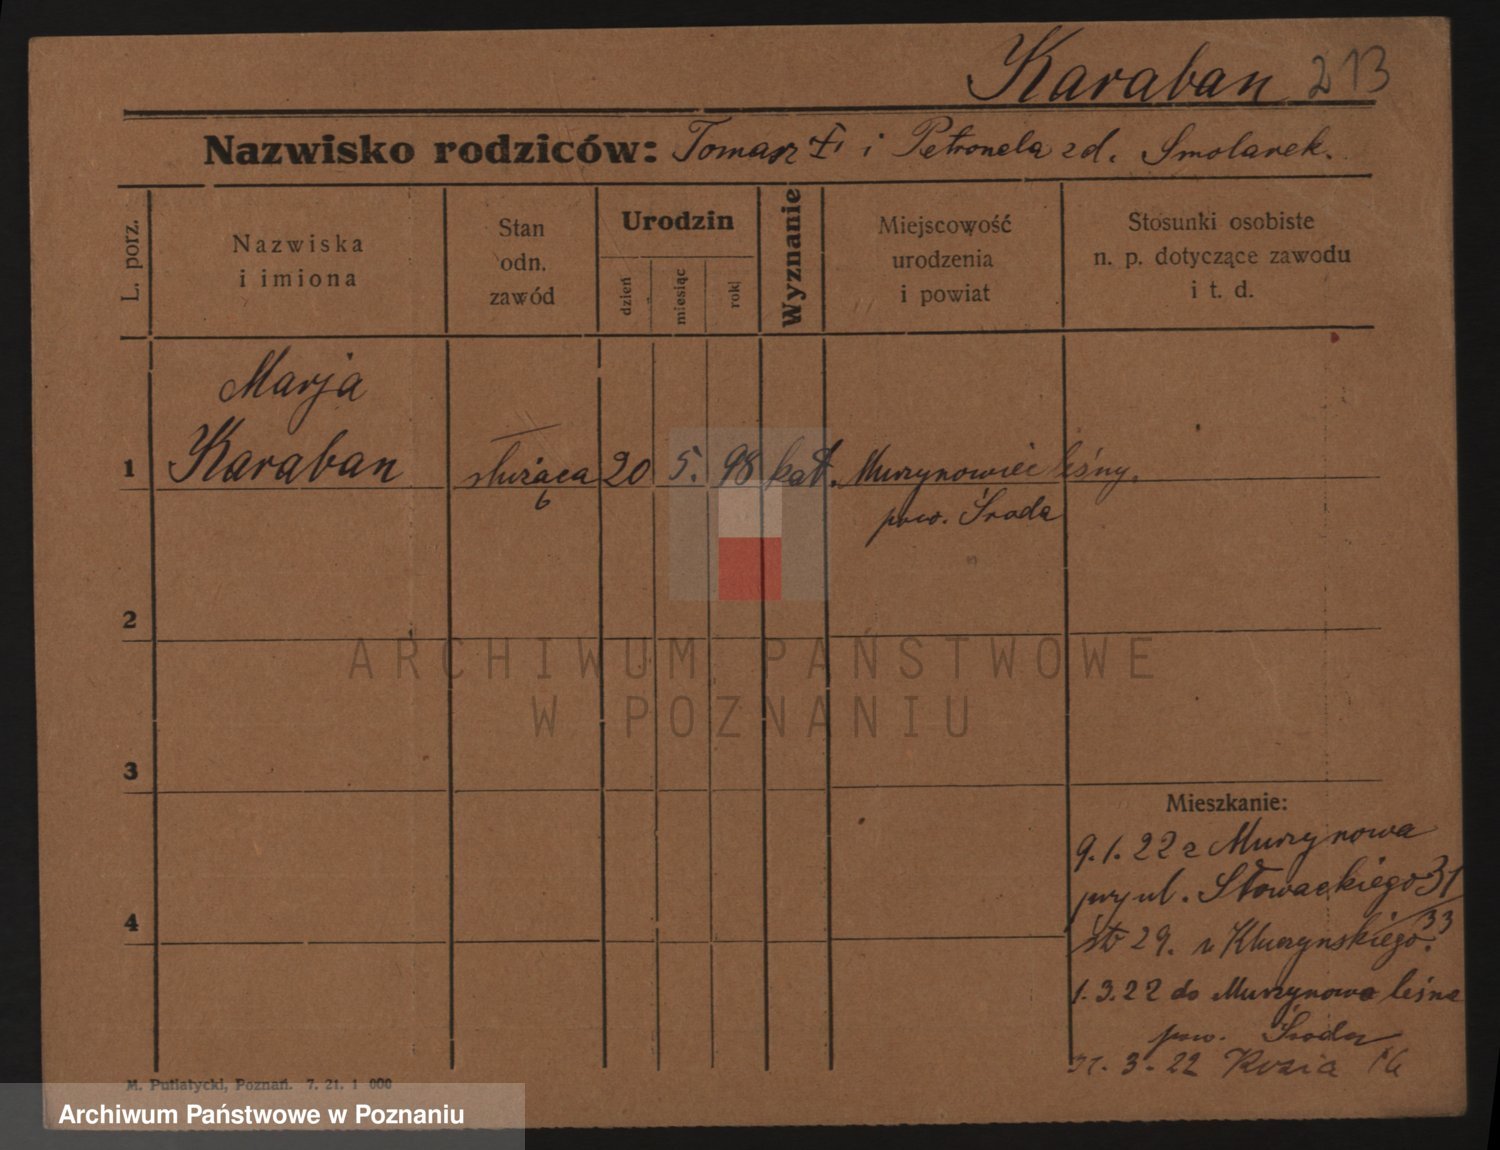 Karaban 213
Nazwisko rodziców: Tomasz † i Petronela zd. Smolarek.
L. porz.
Nazwiska
i imiona
Stan
odn.
zawód
Urodzin
dzień
miesiąc
rok
Wyznanie
Miejscowość
urodzenia
i powiat
Stosunki osobiste
n. p. dotyczące zawodu
i t. d.
Marja
1 Karaban służąca 20 5. 98 kat. Murzynowiec leśny.
pow. Środa
2
ARCHIWUM PAŃSTWOWE
W POZNANIU
3
Mieszkanie:
9.1.22 z Murzynowa
przy ul. Słowackiego 31
33
29. u Kluczynskiego.
4
1.3.22 do Murzynowa leśna
pow. Środa
3. 22
M. Putiatycki, Poznań. 7. 21. 1 000
Archiwum Państwowe w Poznaniu